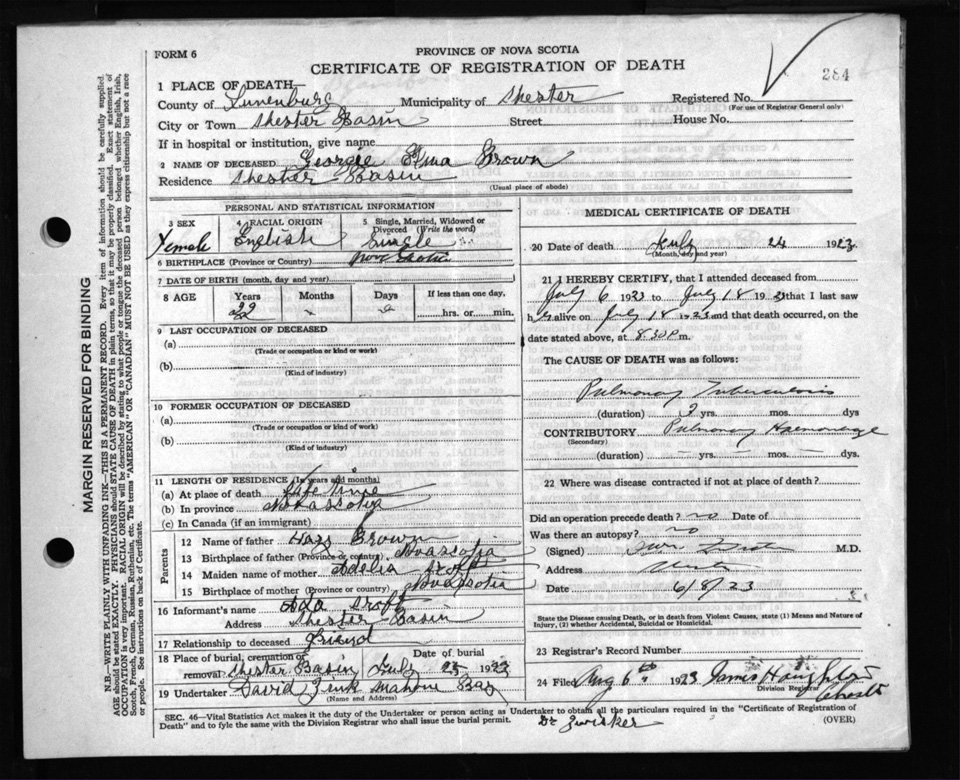 FORM 6
PROVINCE OF NOVA SCOTIA
CERTIFICATE OF REGISTRATION OF DEATH
284
1 PLACE OF DEATH
County of Lunenburg Municipality of Chester Registered No.
(For use of Registrar General only)
City or Town Chester Basin Street House No.
If in hospital or institution, give name
2 NAME OF DECEASED Georgie Brown
Residence Chester Basin
(Usual place of abode)
PERSONAL AND STATISTICAL INFORMATION
3 SEX
Female
4 RACIAL ORIGIN
English
5 Single, Married, Widowed or Divorced (Write the word)
Single
6 BIRTHPLACE (Province or Country) Nova Scotia
7 DATE OF BIRTH (month, day and year)
8 AGE Years Months Days If less than one day.
22 hrs. or min.
9 LAST OCCUPATION OF DECEASED
(a)
(Trade or occupation or kind of work)
(b)
(Kind of industry)
10 FORMER OCCUPATION OF DECEASED
(a)
(Trade or occupation or kind of work)
(b)
(Kind of industry)
11 LENGTH OF RESIDENCE (In years and months)
(a) At place of death Life time
(b) In province Nova Scotia
(c) In Canada (if an immigrant)
Parents
12 Name of father Brown
13 Birthplace of father (Province or country) Nova Scotia
14 Maiden name of mother Adelia
15 Birthplace of mother (Province or country) Nova Scotia
16 Informant's name Ada
Address Chester Basin
17 Relationship to deceased Friend
18 Place of burial, cremation or removal Chester Basin Date of burial July 25 1923
19 Undertaker David Zink Mahone Bay
(Name and Address)
MEDICAL CERTIFICATE OF DEATH
20 Date of death July 24 1923
(Month, day and year)
21 I HEREBY CERTIFY, that I attended deceased from
July 6 1923 to July 18 1923 that I last saw
h alive on July 18 1923 and that death occurred, on
date stated above, at 8.30 P m.
The CAUSE OF DEATH was as follows:
Pulmonary Tuberculosis
(duration) 2 yrs. mos. dys
CONTRIBUTORY Pulmonary Haemorrhage
(Secondary)
(duration) – yrs. – mos. – dys.
22 Where was disease contracted if not at place of death?
Did an operation precede death? no Date of
Was there an autopsy? no
(Signed) M.D.
Address Chester
Date 6/8/23
State the Disease causing Death, or in death from Violent Causes, state (1) Means and Nature of Injury, (2) whether Accidental, Suicidal or Homicidal.
23 Registrar's Record Number
24 Filed Aug 6th 1923 James Houghton
Division Registrar
Chester
SEC. 46—Vital Statistics Act makes it the duty of the Undertaker or person acting as Undertaker to obtain all the particulars required in the "Certificate of Registration of
Death" and to fyle the same with the Division Registrar who shall issue the burial permit.
Dr Zwicker
(OVER)
MARGIN RESERVED FOR BINDING
N.B.—WRITE PLAINLY WITH UNFADING INK—THIS IS A PERMANENT RECORD. Every item of information should be carefully supplied.
AGE should be stated EXACTLY. PHYSICIANS should STATE CAUSE OF DEATH in plain terms, so that it may be properly classified. Exact statement of
OCCUPATION is very important. RACIAL ORIGIN will be described by stating to what people or tongue the deceased person belonged whether English, Irish,
Scotch, French, German, Russian, Ruthenian, etc. The terms "AMERICAN" OR "CANADIAN" MUST NOT BE USED as they express citizenship but not a race
or people. See instructions on back of Certificate.